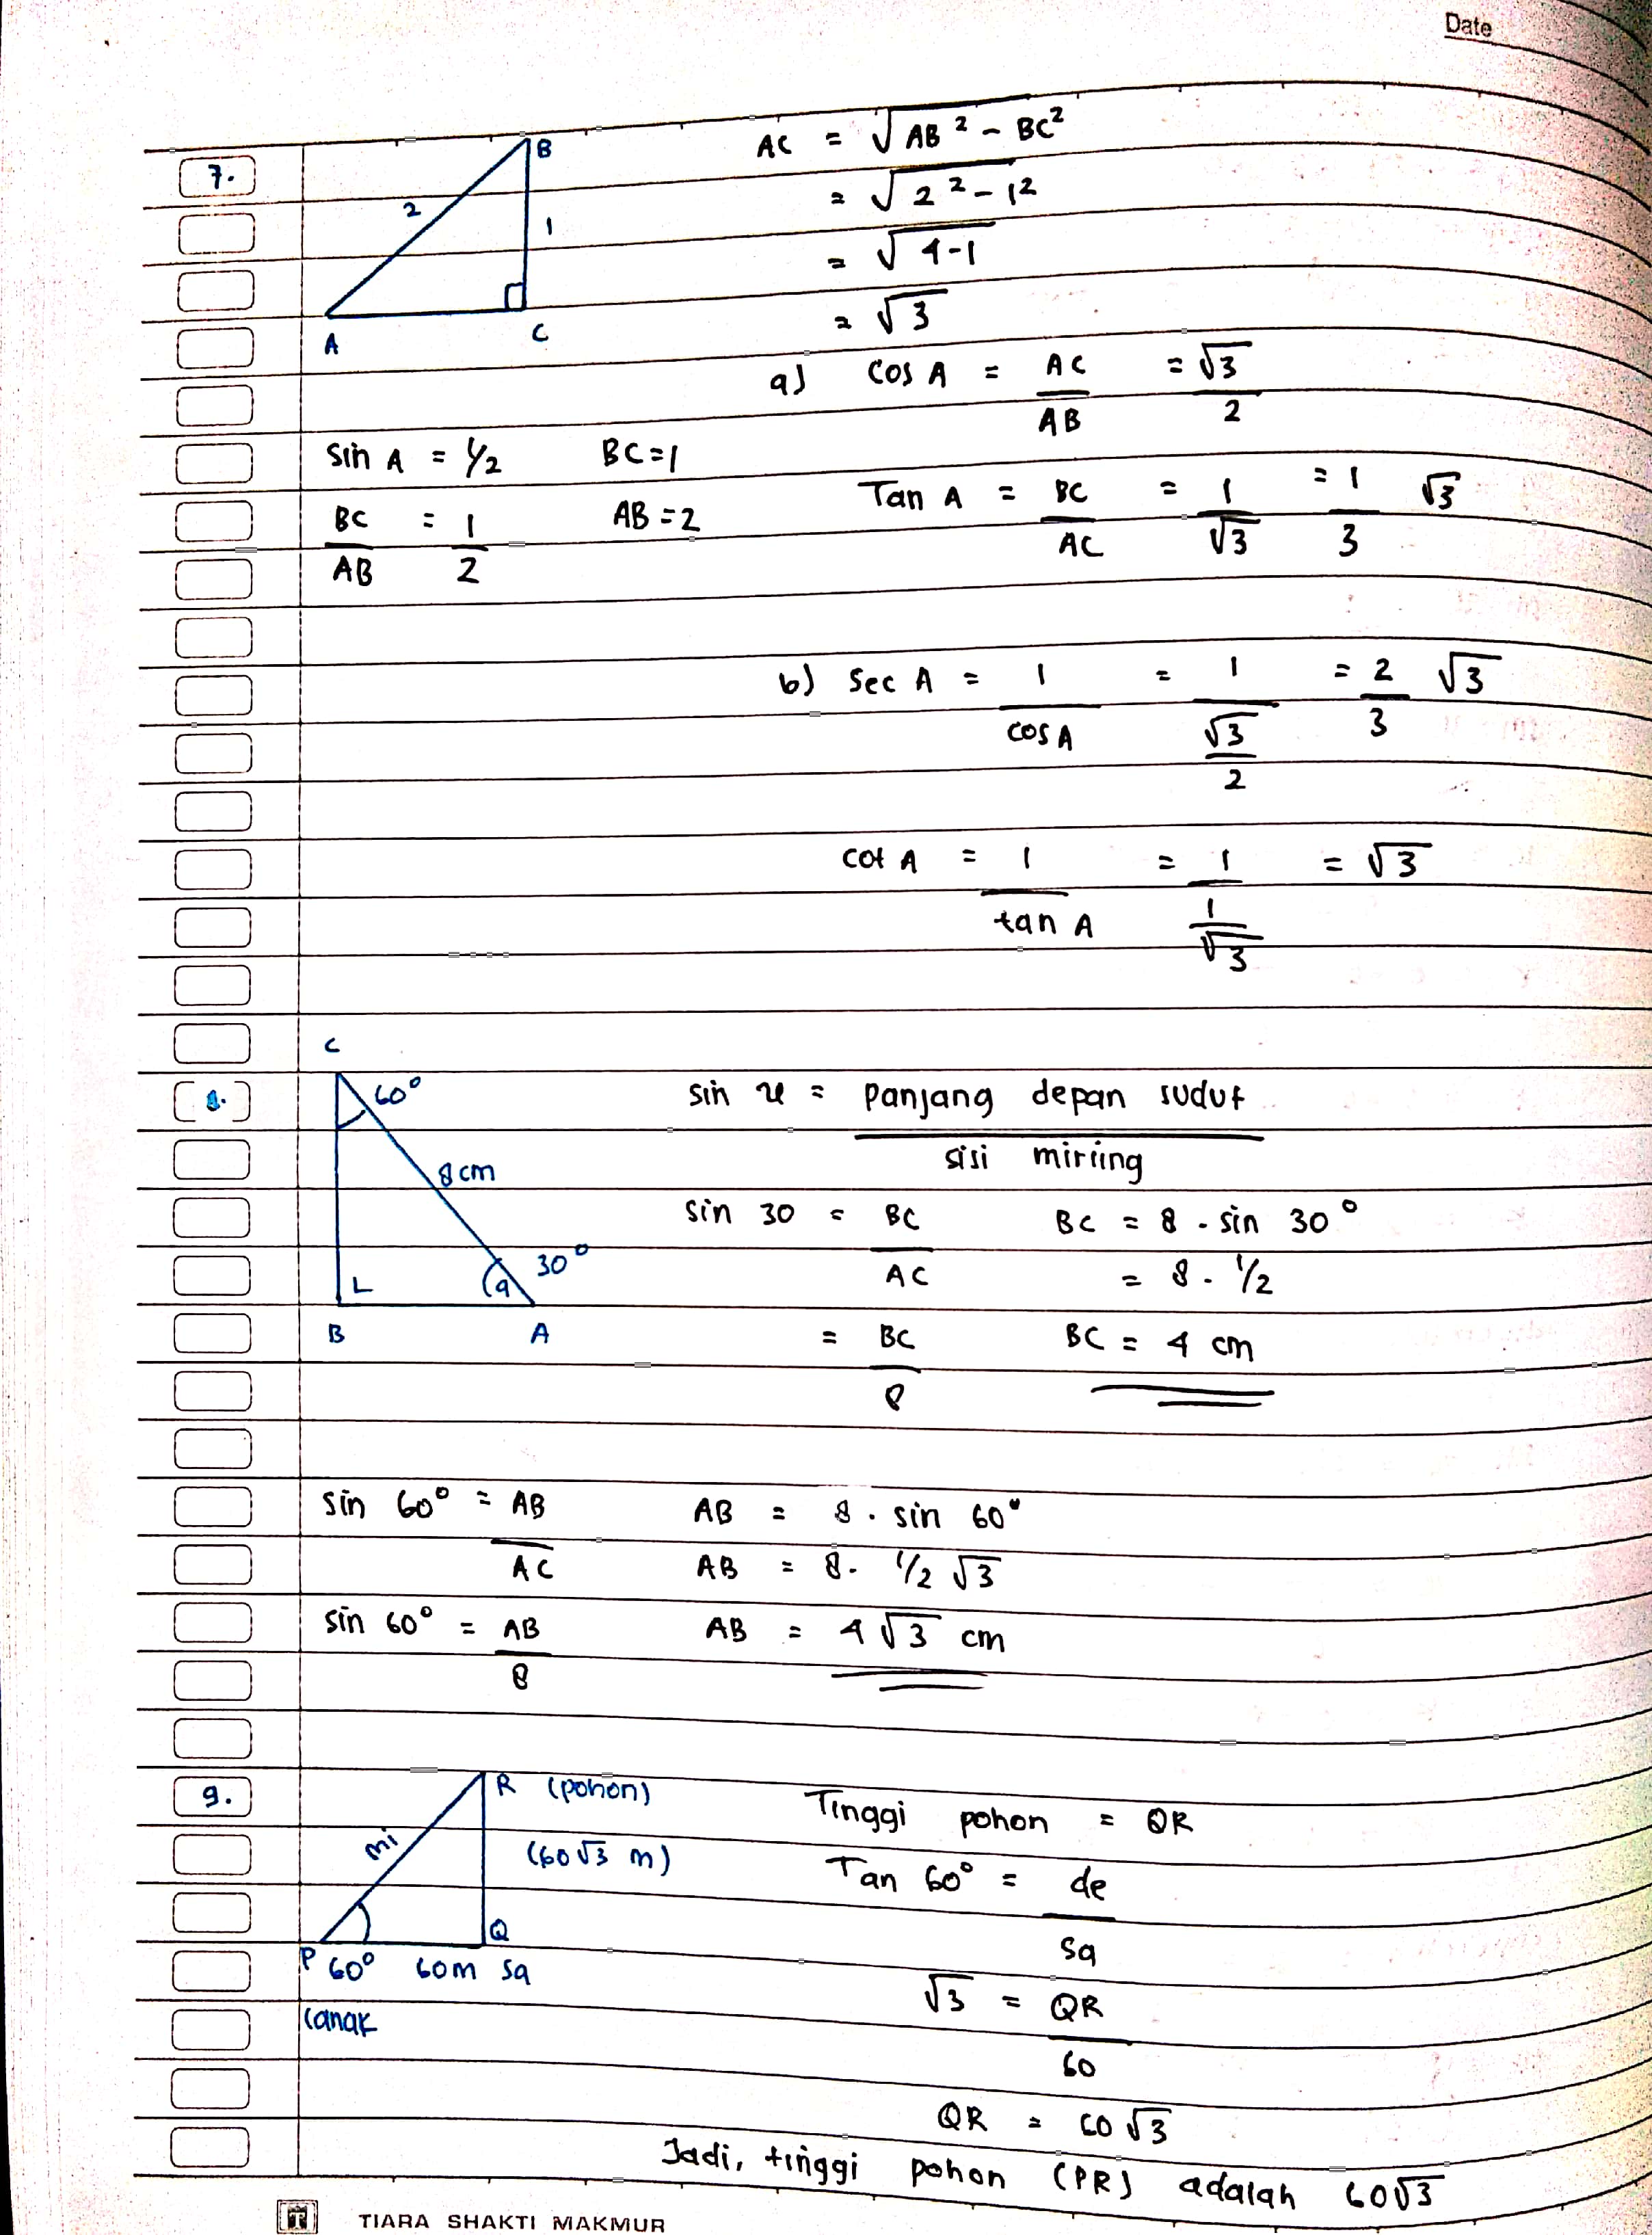 Date
7.
B
2
1
A
C
AC = √AB² - BC²
= √2² - 1²
= √4-1
= √3
a) cos A = AC/AB = √3/2
sin A = 1/2 BC=1
BC/AB = 1/2 AB=2
Tan A = BC/AC = 1/√3 = 1/3 √3
b) sec A = 1/cos A = 1/(√3/2) = 2/3 √3
cot A = 1/tan A = 1/(1/√3) = √3
8.
C
60°
8 cm
30°
a
B
A
sin x = panjang depan sudut / sisi miriing
sin 30 = BC/AC BC = 8 . sin 30°
= 8 . 1/2
= BC/8 BC = 4 cm
sin 60° = AB/AC AB = 8 . sin 60°
AB = 8 . 1/2 √3
sin 60° = AB/8 AB = 4√3 cm
9.
R (pohon)
mi
(60√3 m)
Q
P 60° 60m sa
(anak
Tinggi pohon = QR
Tan 60° = de/sa
√3 = QR/60
QR = 60√3
Jadi, tinggi pohon (PR) adalah 60√3
TIARA SHAKTI MAKMUR